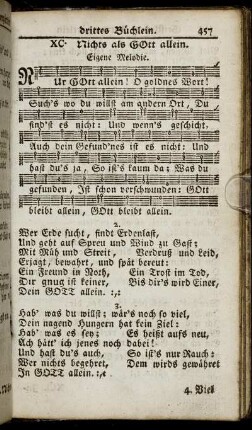 drittes Büchlein. 457
XC. Nichts als GOtt allein.
Eigene Melodie.
NUr GOtt allein! O goldnes Wort!
Such's wo du willst am andern Ort, Du
find'st es nicht: Und wenn's geschicht,
Auch dein Gefund'nes ist es nicht: Und
hast du's ja, So ist's kaum da; Was du
gefunden, Ist schon verschwunden: GOtt
bleibt allein, GOtt bleibt allein.
2.
Wer Erde sucht, findt Erdenlast,
Und geht auf Spreu und Wind zu Gast;
Mit Müh und Streit, Verdruß und Leid,
Erjagt, bewahrt, und spät bereut:
Ein Freund in Noth, Ein Trost im Tod,
Dir gnug ist keiner, Bis dir's wird Einer,
Dein GOTT allein. :,:
3.
Hab' was du willst; wär's noch so viel,
Dein nagend Hungern hat kein Ziel:
Hab' was es sey; Es heißt aufs neu,
Ach hätt' ich jenes noch dabei!
Und hast du's auch, So ist's nur Rauch:
Wer nichts begehret, Dem wirds gewähret
In GOTT allein. :,:
4. Viel